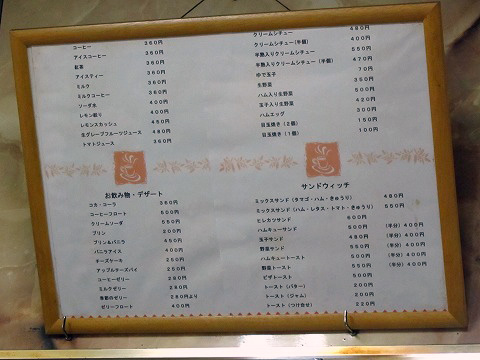 コーヒー 360円
アイスコーヒー 360円
紅茶 360円
アイスティー 360円
ミルク 360円
ミルクコーヒー 360円
ソーダ水 400円
レモン絞り 400円
レモンスカッシュ 450円
生グレープフルーツジュース 480円
トマトジュース 360円
クリームシチュー 480円
クリームシチュー(半個) 400円
半熟入りクリームシチュー 550円
半熟入りクリームシチュー(半個) 470円
ゆで玉子 70円
生野菜 350円
ハム入り生野菜 500円
玉子入り生野菜 420円
ハムエッグ 300円
目玉焼き(2個) 150円
目玉焼き(1個) 100円
お飲み物・デザート
コカ・コーラ 360円
コーヒーフロート 500円
クリームソーダ 550円
プリン 200円
プリン&バニラ 450円
バニラアイス 400円
チーズケーキ 250円
アップルチーズパイ 250円
コーヒーゼリー 250円
ミルクゼリー 280円
季節のゼリー 280円より
ゼリーフロート 400円
サンドウィッチ
ミックスサンド(タマゴ・ハム・きゅうり) 480円
ミックスサンド(ハム・レタス・トマト・きゅうり) 550円
ヒレカツサンド 600円
ハムキューサンド 500円 (半分)400円
玉子サンド 480円 (半分)400円
野菜サンド 550円 (半分)400円
ハムキュートースト 500円 (半分)400円
野菜トースト 550円 (半分)400円
ピザトースト 500円
トースト(バター) 200円
トースト(ジャム) 200円
トースト(つけ合せ) 220円